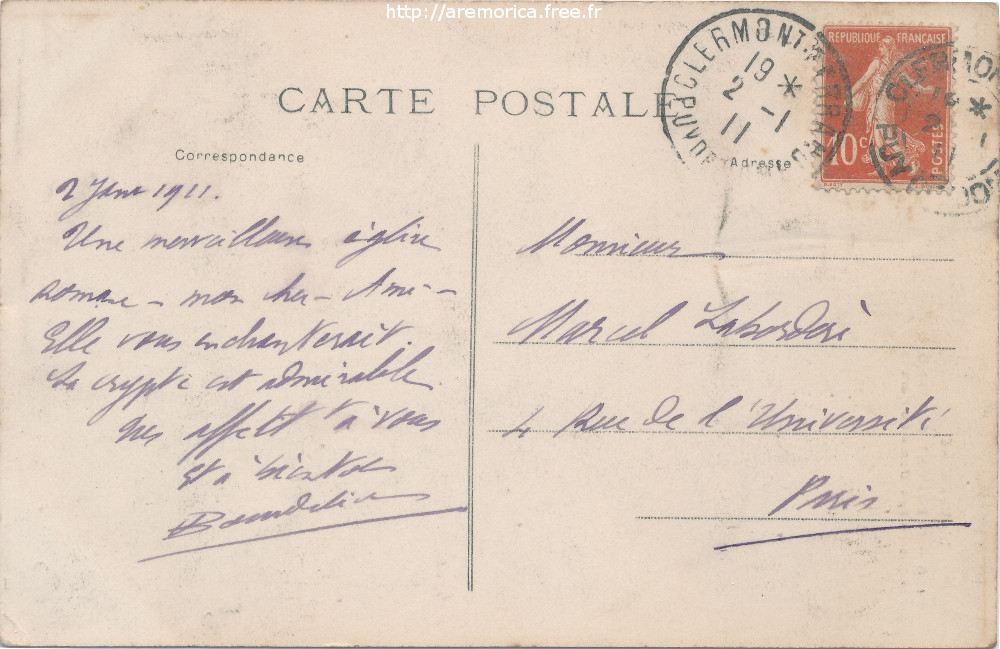 http://aremorica.free.fr
CARTE POSTALE
RÉPUBLIQUE FRANÇAISE
10c
POSTES
CLERMONT-FERRAND
PUY DE
19 *
2 -1
11
Correspondance
Adresse
2 Janv 1911.
Une merveilleuse église
romane - mon cher - Ami -
Elle vous enchanterait.
La crypte est admirable
affectt à vous
et à bientot
Monsieur
Marcel Laborderè
4 Rue de l'Université
Paris